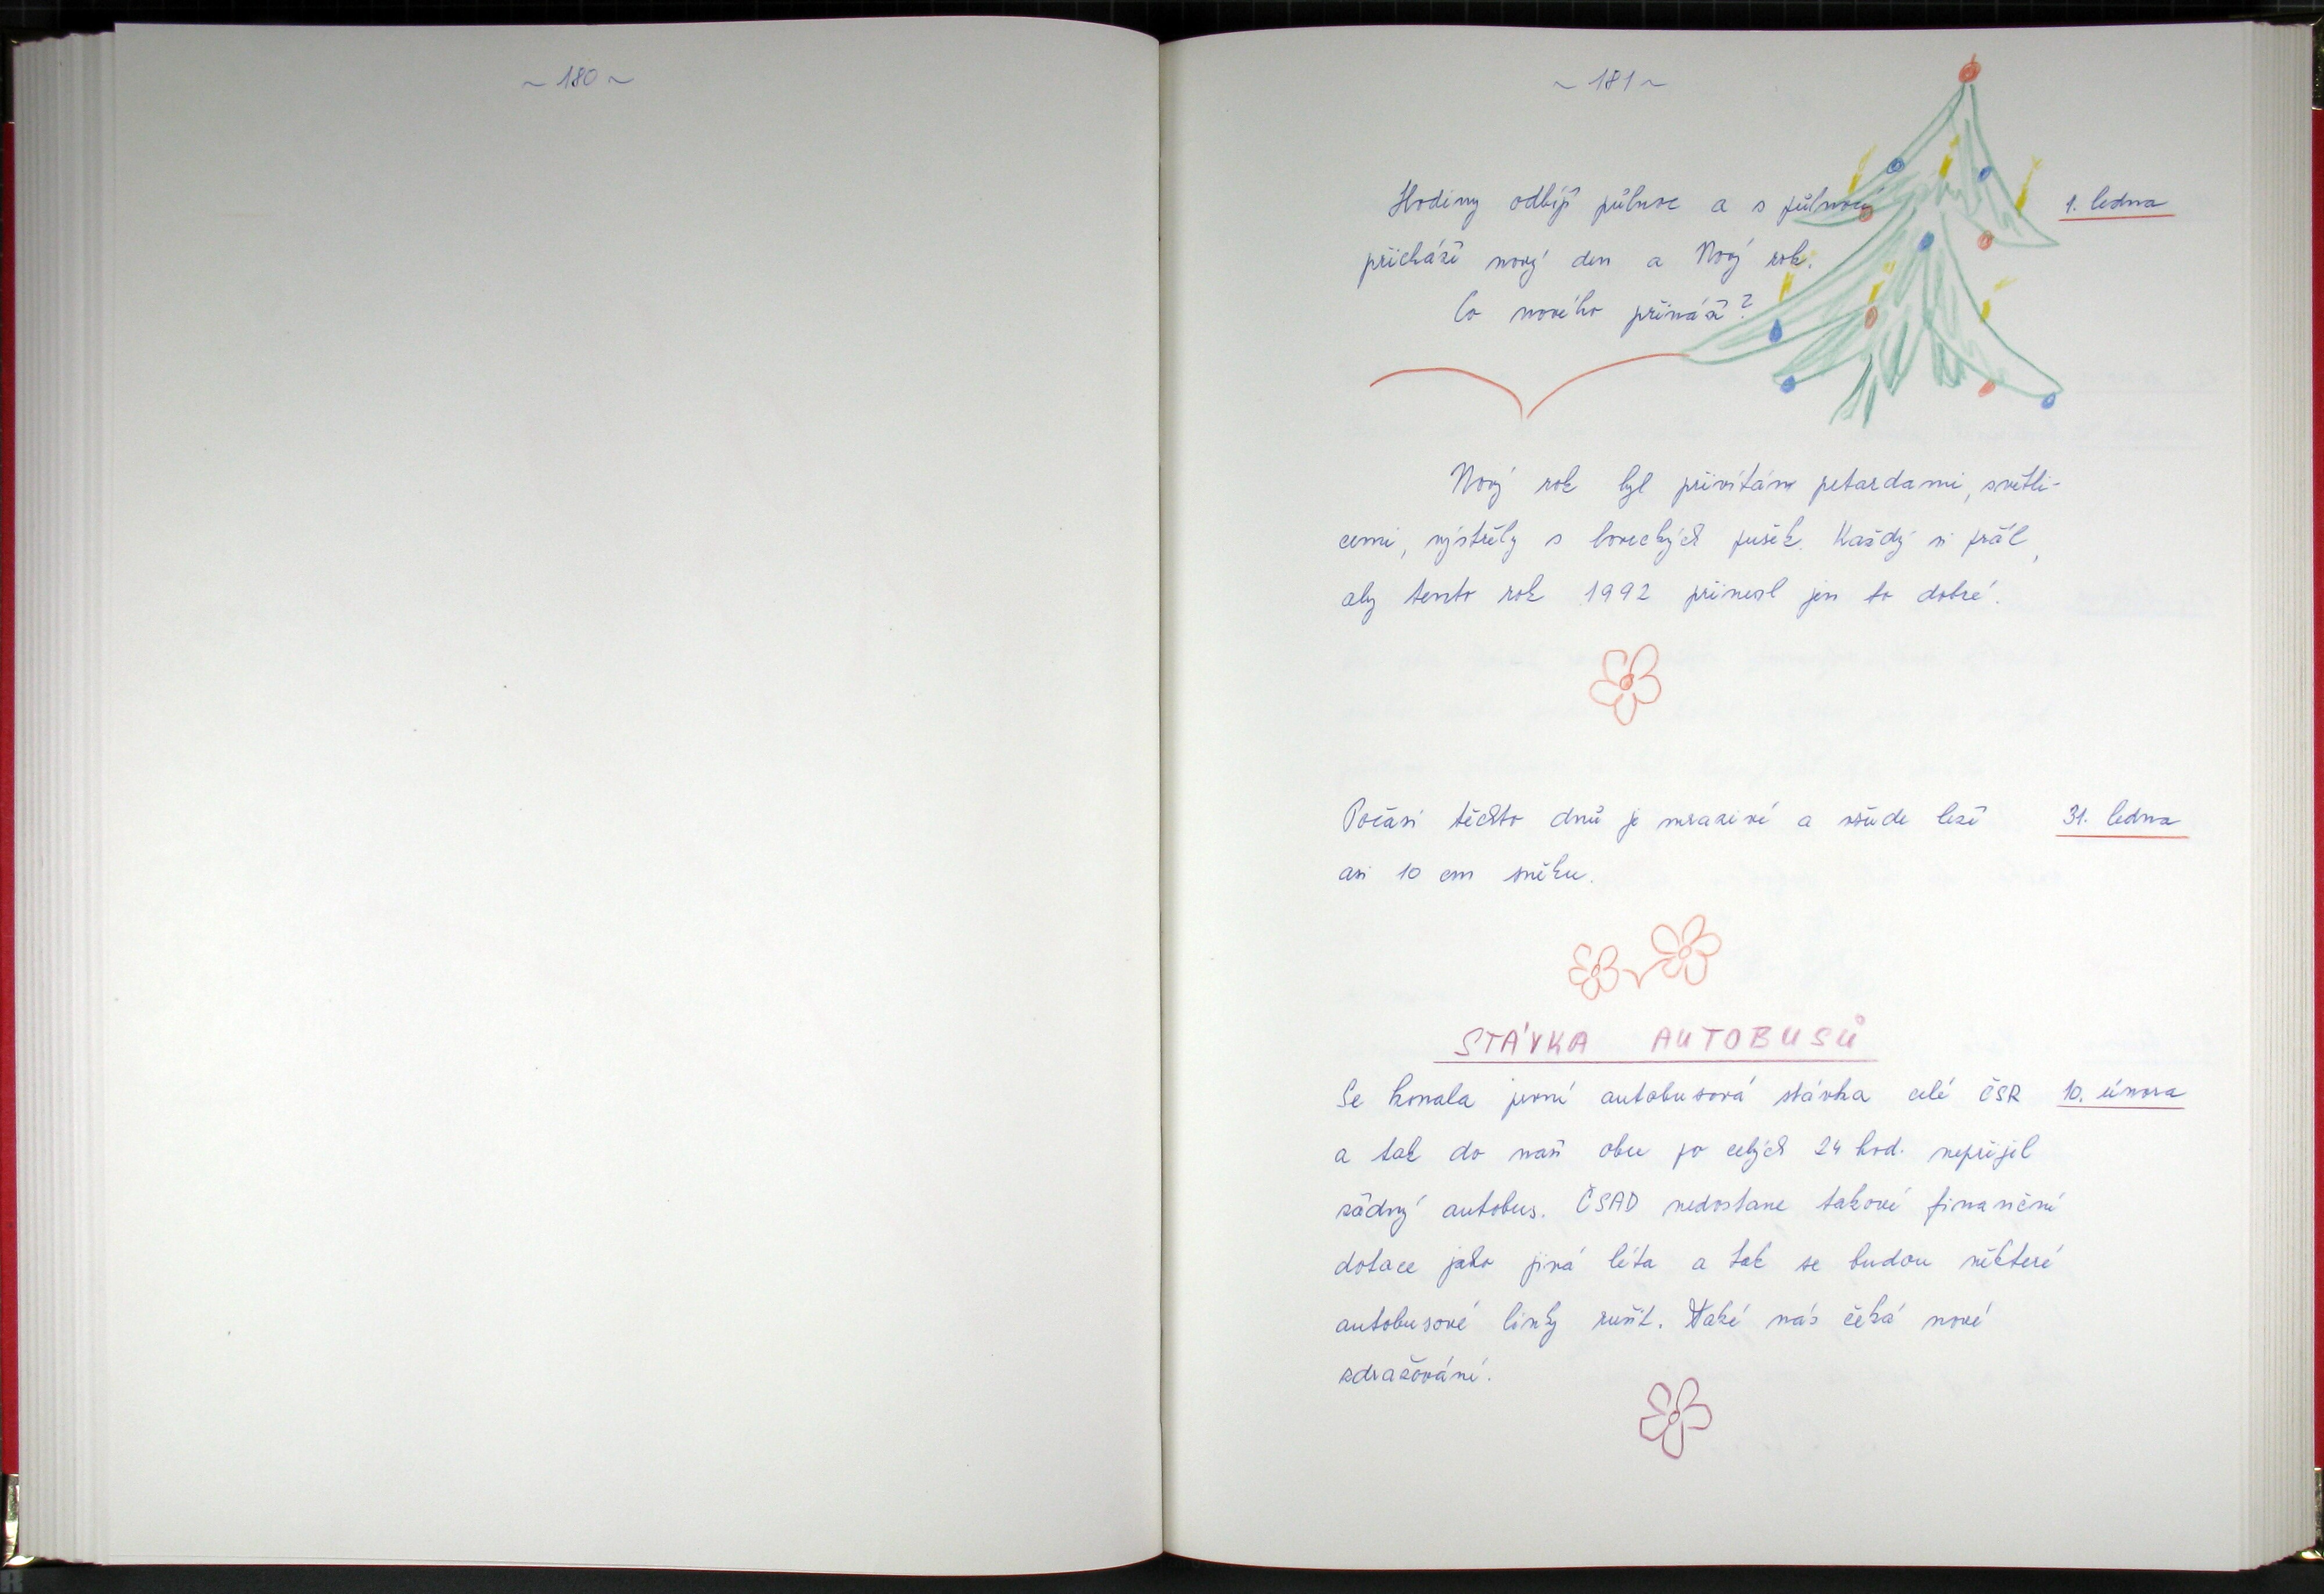 ~ 180 ~
~ 181 ~
Hodiny odbíjí půlnoc a s půlnocí 1. ledna
přichází nový den a Nový rok.
Co nového přináší?
Nový rok byl přivítán petardami, světli-
cemi, výstřely s loveckých pušek. Každý si přál,
aby tento rok 1992 přinesl jen to dobré.
Počasí těchto dnů je mrazivé a všude leží 31. ledna
asi 10 cm sněhu.
STÁVKA AUTOBUSŮ
Se konala první autobusová stávka celé ČSR 10. února
a tak do naší obce po celých 24 hod. nepřijel
žádný autobus. ČSAD nedostane takové finanční
dotace jako jiná léta a tak se budou některé
autobusové linky rušit. Také nás čeká nové
zdražování.